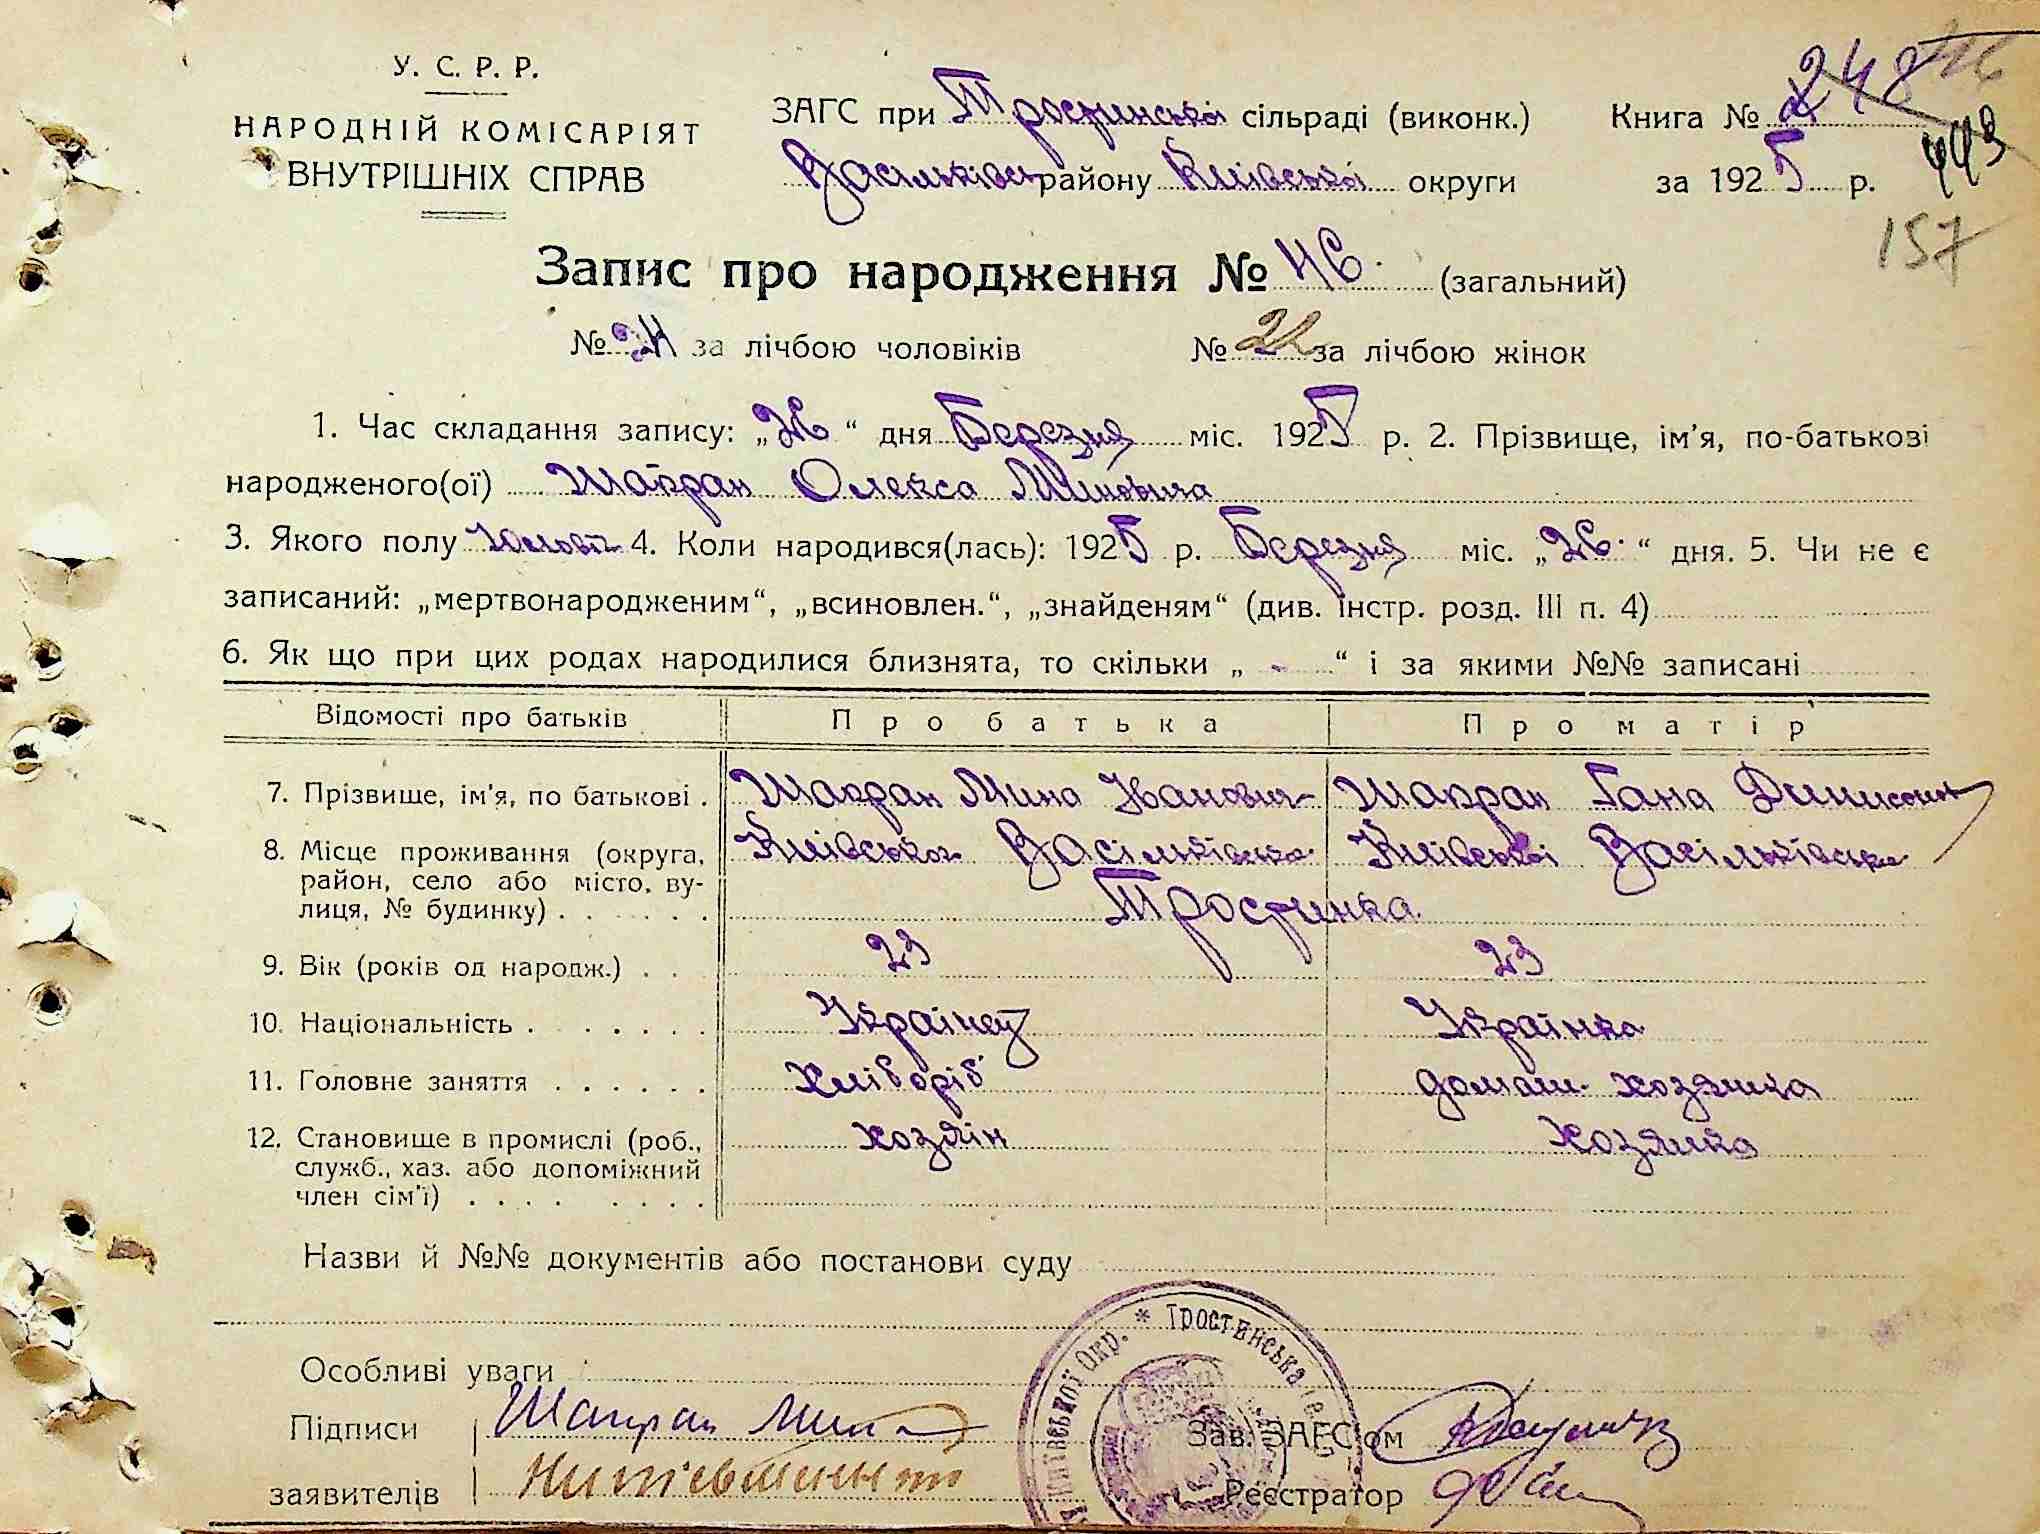 У. С. Р. Р.
НАРОДНІЙ КОМІСАРІЯТ
ВНУТРІШНІХ СПРАВ
ЗАГС при Тростинській сільраді (виконк.)
Васільківськ району Київської округи
Книга № 248
443
за 1925 р.
157
Запис про народження № 46. (загальний)
№ 24 за лічбою чоловіків № 22 за лічбою жінок
1. Час складання запису: „26“ дня Березня міс. 1925 р. 2. Прізвище, ім'я, по-батькові
народженого(ої) Шапран Олекса Минович
3. Якого полу Чолові 4. Коли народився(лась): 1925 р. Березня міс. „26“ дня. 5. Чи не є
записаний: „мертвонародженим“, „всиновлен.“, „знайденям“ (див. інстр. розд. III п. 4)
6. Як що при цих родах народилися близнята, то скільки „ - “ і за якими №№ записані
Відомості про батьків Про батька Про матір
7. Прізвище, ім'я, по батькові . Шапран Мина Іванович Шапран Гана Динисовна
8. Місце проживання (округа, Київська Васільківська Київської Васільківська
район, село або місто, ву-
лиця, № будинку) . . . . . . Тростинка
9. Вік (років од народж.) . . 23 23
10. Національність . . . . . . Українец Українка
11. Головне заняття . . . . . . Хліборіб домаш. хозяйка
12. Становище в промислі (роб., хозяін Хозяйка
служб., хаз. або допоміжний
член сім'ї) . . . . . . . .
Назви й №№ документів або постанови суду
Київської Окр. * Тростенська
Особливі уваги
Підписи Шапран Мина Зав. ЗАГС'ом
заявителів Реєстратор